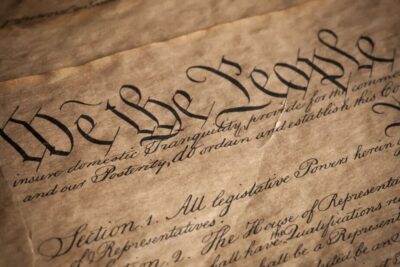 We the People
insure domestic Tranquility, provide for the common
and our Posterity, do ordain and establish this Co
Section. 1. All legislative Powers herein
of Representatives.
Section. 2. The House of Representa
shall have the Qualifications re
shall be a Represent